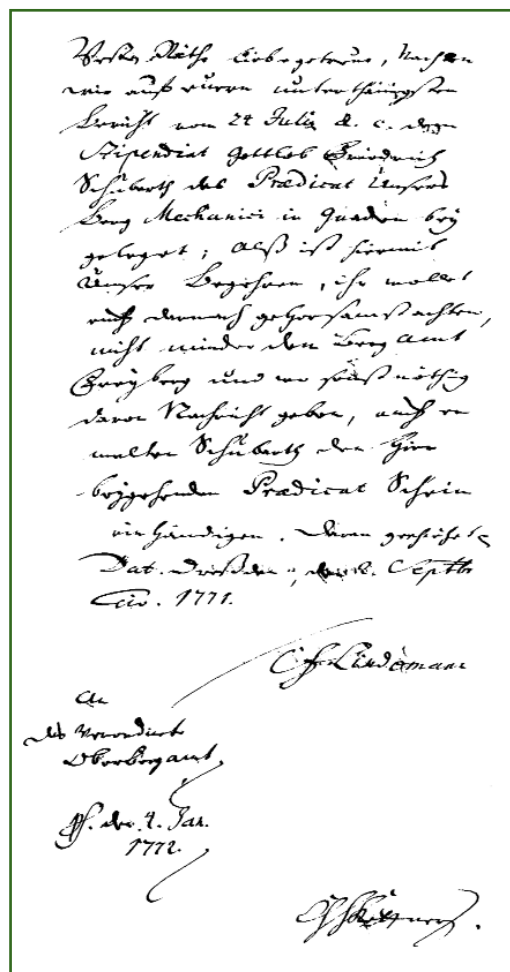 Veste Räthe liebe getreue, Nachdem
wir auf euern unterthänigsten
Bericht vom 24 Julij d. c. dem
Stipendiat Gottlob Friedrich
Schuberth das Prædicat Unsers
Berg Mechanici in Gnaden bey
geleget; Alß ist hiermit
Unser Begehren, ihr wollet
euch darnach gehorsamst achten,
nicht minder dem Berg Amt
Freyberg und wo sonst nöthig
davon Nachricht geben, auch er
melten Schuberth den hier
beygehenden Prædicat Schein
ein händigen. Daran geschiehet
Dat. Dreßden, den Septbr
1771.
Lindemann
An
das Verordnete
Oberbergamt,
den 4. Jan.
1772.